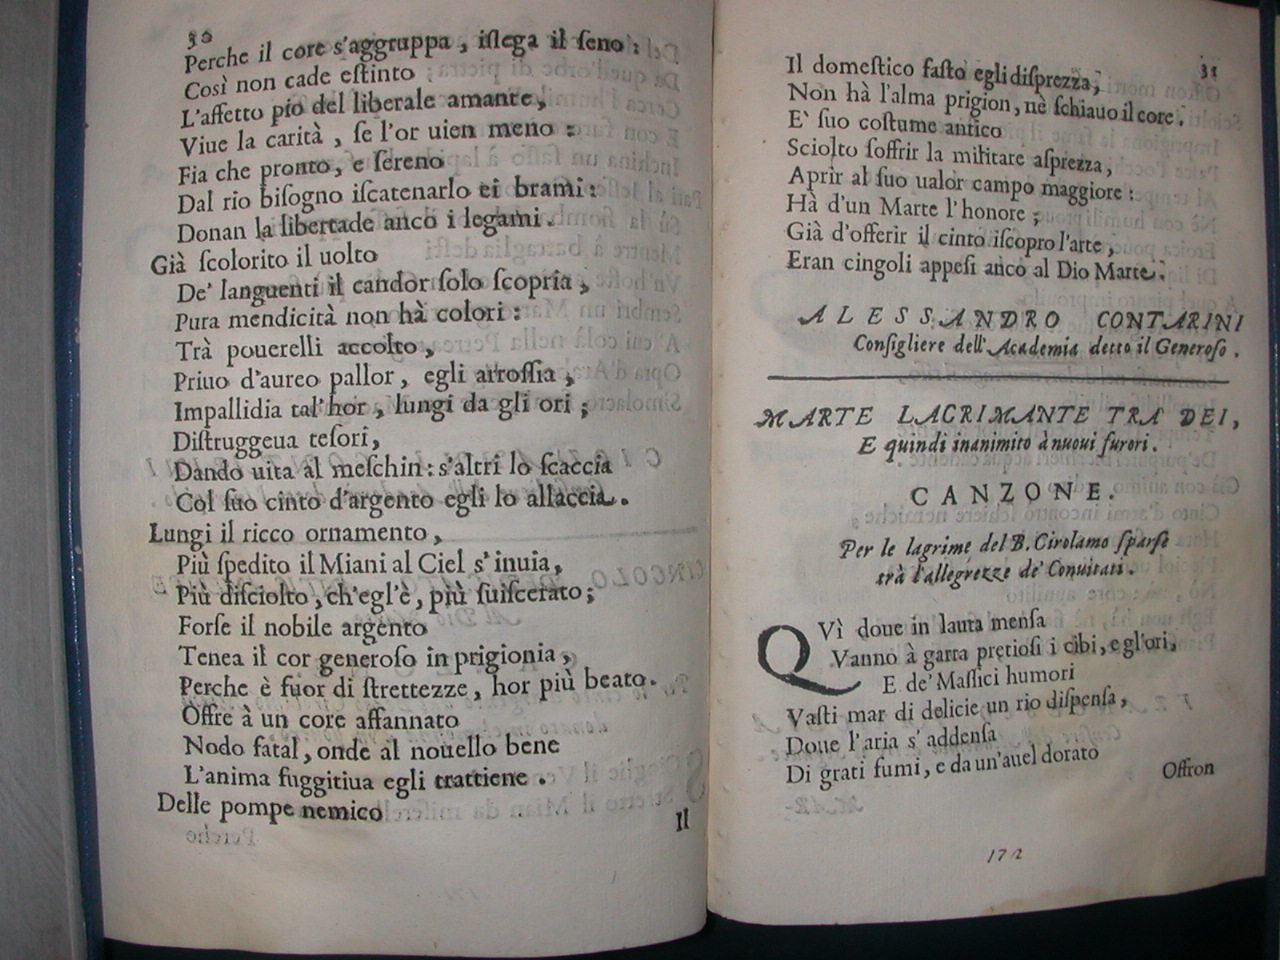 30
Perche il core s'aggruppa, iſlega il ſeno:
Così non cade eſtinto
L'affetto pio del liberale amante,
Viue la carità, ſe l'or uien meno:
Fia che pronto, e ſereno
Dal rio biſogno iſcatenarlo ei brami:
Donan la libertade anco i legami.
Già ſcolorito il uolto
De' languenti il candor ſolo ſcopria,
Pura mendicità non hà colori:
Trà pouerelli accolto,
Priuo d'aureo pallor, egli arroſſia,
Impallidia tal'hor, lungi da gli ori;
Diſtruggeua teſori,
Dando uita al meſchin: s'altri lo ſcaccia
Col ſuo cinto d'argento egli lo allaccia.
Lungi il ricco ornamento,
Più ſpedito il Miani al Ciel s'inuia,
Più diſciolto, ch'egl'è, più ſuiſcerato;
Forſe il nobile argento
Tenea il cor generoſo in prigionia,
Perche è fuor di ſtrettezze, hor più beato.
Offre à un core affannato
Nodo fatal, onde al nouello bene
L'anima fuggitiua egli trattiene.
Delle pompe nemico
Il
31
Il domeſtico faſto egli diſprezza,
Non hà l'alma prigion, nè ſchiauo il core.
E' ſuo coſtume antico
Sciolto ſoffrir la militare aſprezza,
Aprir al ſuo ualor campo maggiore:
Hà d'un Marte l'honore;
Già d'offerir il cinto iſcopro l'arte,
Eran cingoli appeſi anco al Dio Marte.
ALESSANDRO CONTARINI
Conſigliere dell'Academia detto il Generoſo.
MARTE LACRIMANTE TRA DEI,
E quindi inanimito à nuoui furori.
CANZONE.
Per le lagrime del B. Girolamo ſparſe
trà l'allegrezze de' Conuitati.
QVì doue in lauta menſa
Vanno à garra pretioſi i cibi, e gl'ori,
E de' Maſſici humori
Vaſti mar di delicie un rio diſpenſa,
Doue l'aria s'addenſa
Di grati fumi, e da un'auel dorato
Offron